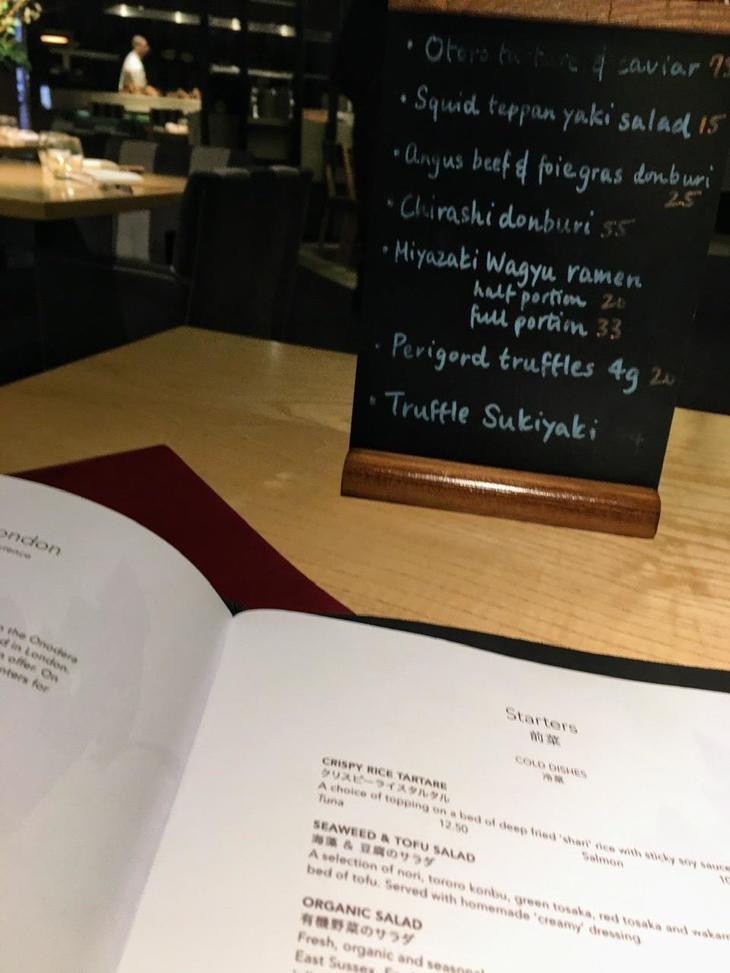 • Otoro & caviar
• Squid teppan yaki salad 15
• Angus beef & foie gras donburi
25
• Chirashi donburi 55
• Miyazaki Wagyu ramen
half portion 20
full portion 33
• Perigord truffles 4g 20
• Truffle Sukiyaki
London
the Onodera
in London.
offer. On
for
Starters
前菜
COLD DISHES
冷菜
CRISPY RICE TARTARE
クリスピーライスタルタル
A choice of topping on a bed of deep fried 'shari' rice with sticky soy sauce
Tuna 12.50 Salmon
SEAWEED & TOFU SALAD
海藻 & 豆腐のサラダ
A selection of nori, tororo konbu, green tosaka, red tosaka and wakam
bed of tofu. Served with homemade 'creamy' dressing
ORGANIC SALAD
有機野菜のサラダ
Fresh, organic and seasonal
East Sussex.